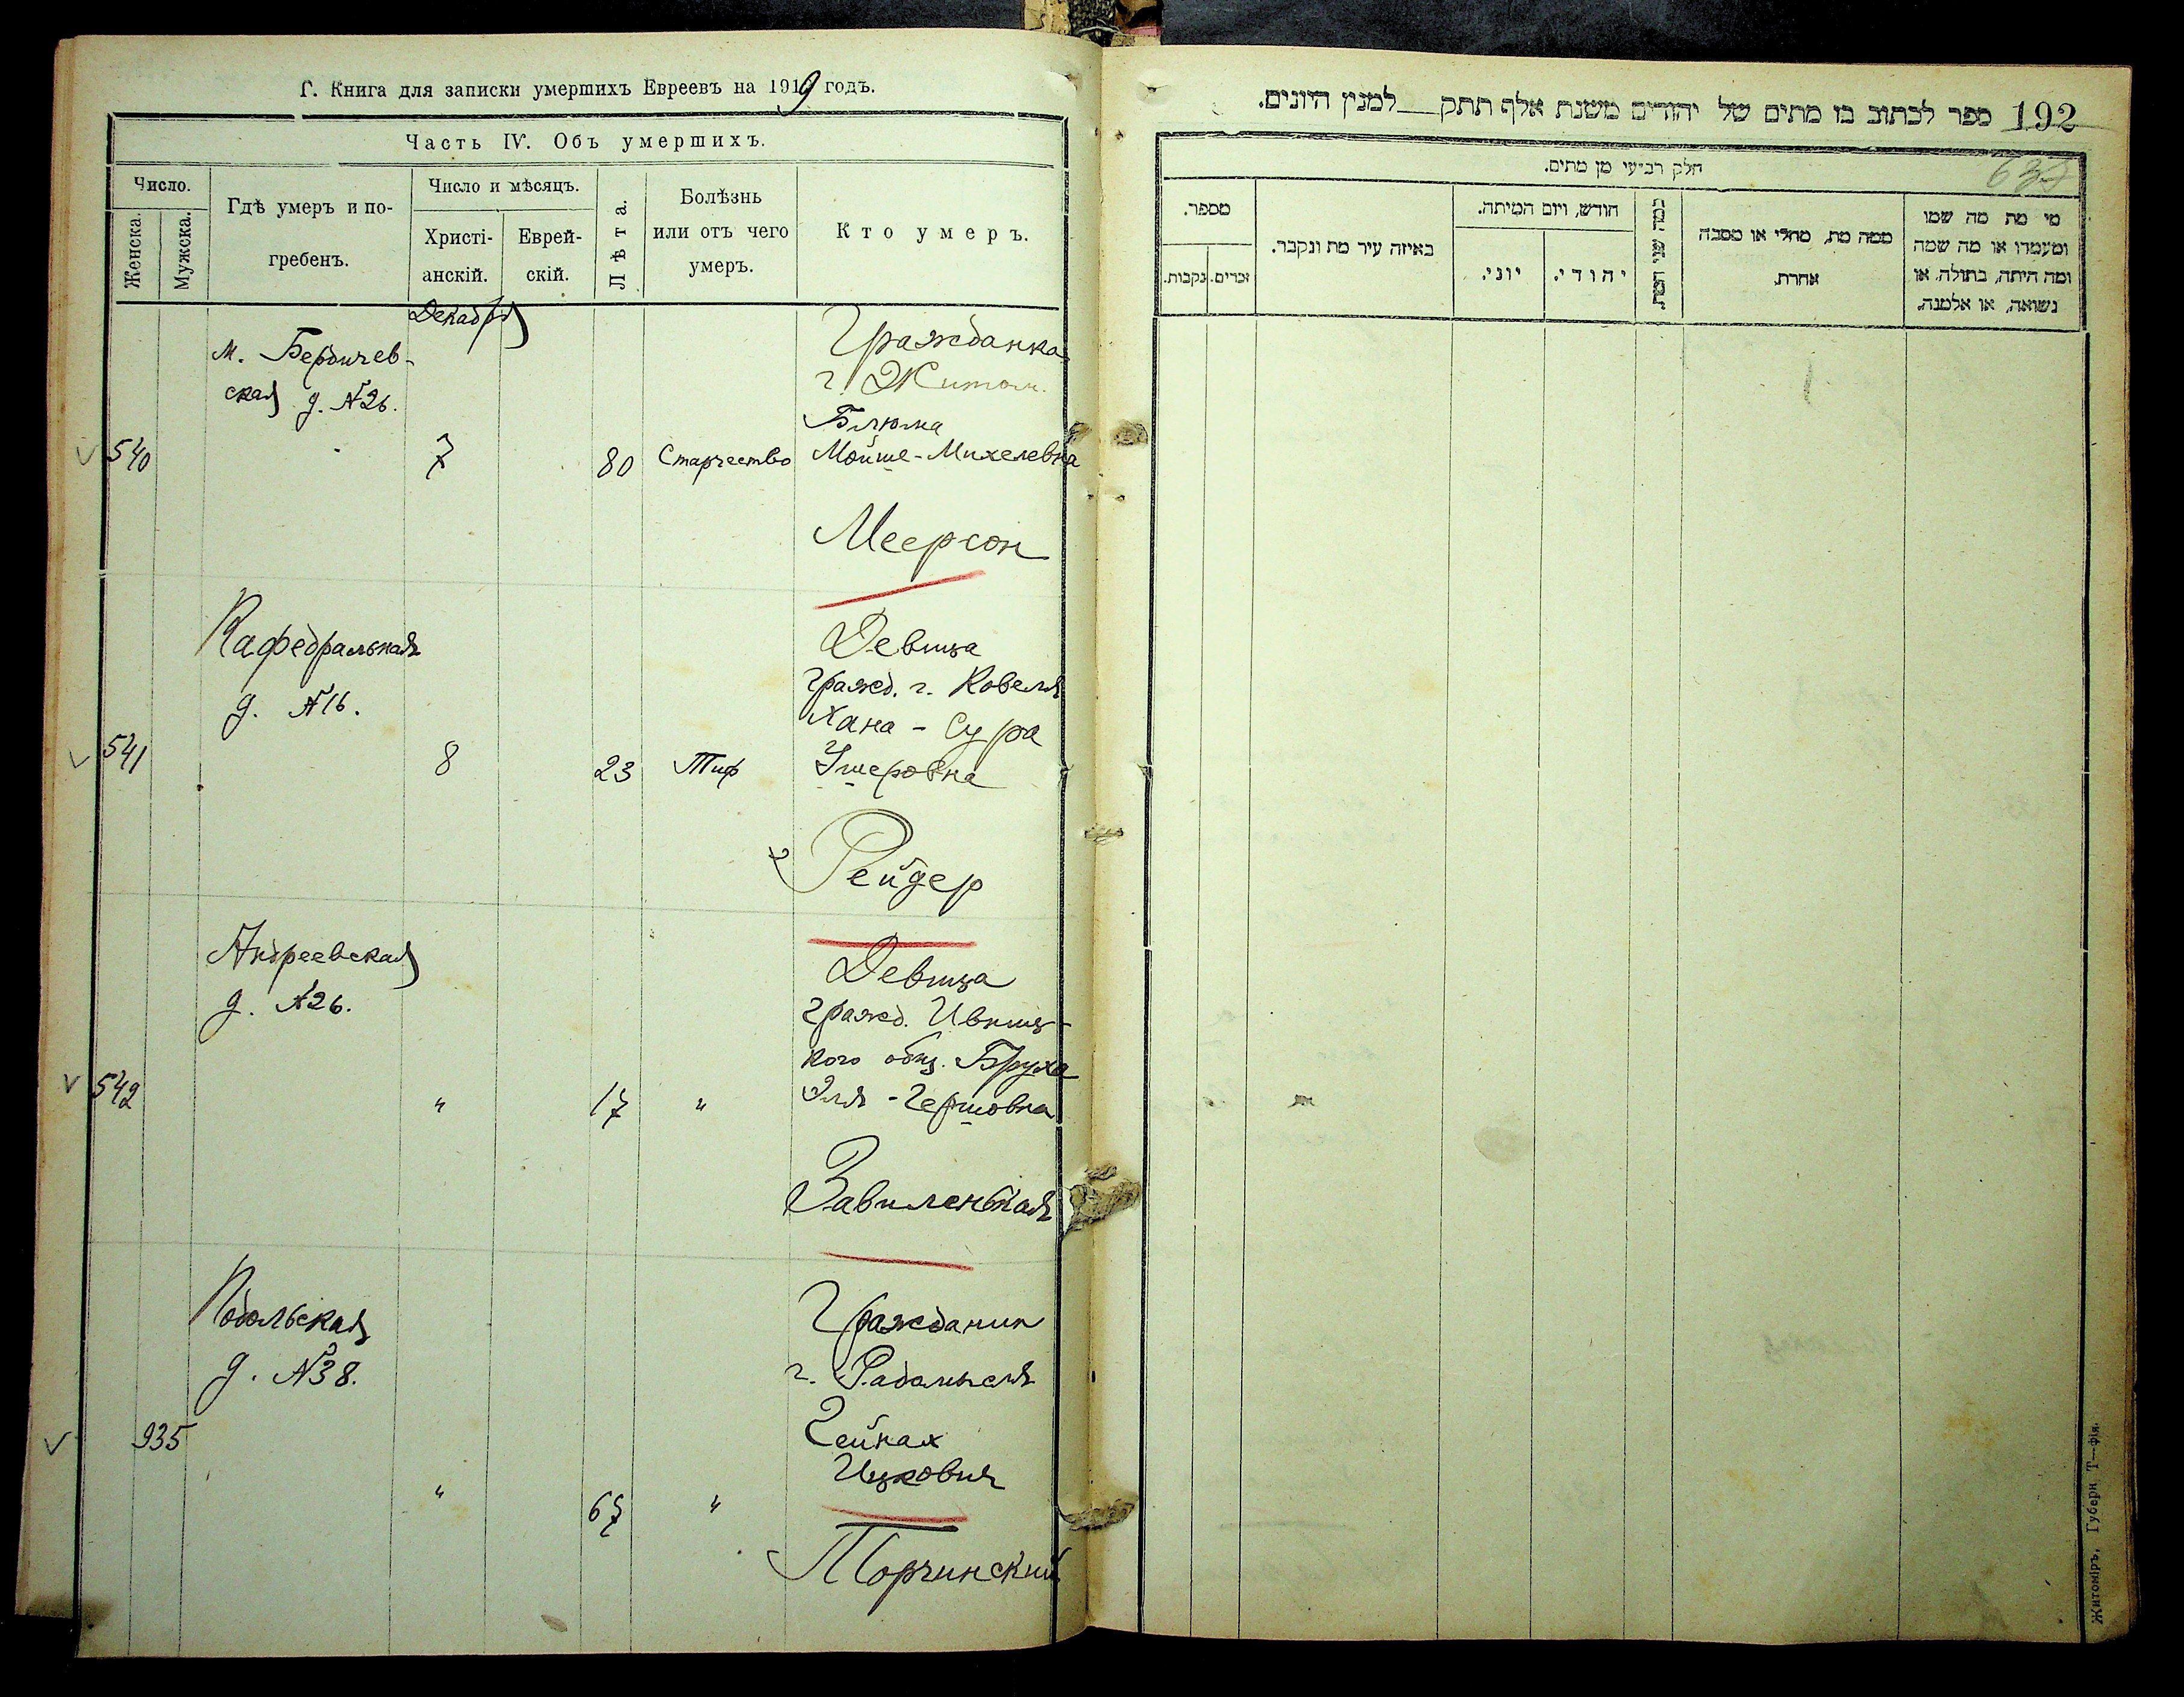 Г. Книга для записки умершихъ Евреевъ на 1919 годъ.
Часть IV. Объ умершихъ.
Число.
Женска.
Мужска.
Гдѣ умеръ и по-
гребенъ.
Число и мѣсяцъ.
Христі-
анскій.
Еврей-
скій.
Лѣта.
Болѣзнь
или отъ чего
умеръ.
Кто умеръ.
Декабря
м. Бердичев-
ская д. №26.
540
7
80
Старчество
Гражданка
г. Житом.
Блюма
Мойше-Михелевна
Меерсон
Кафедральная
д. №16.
541
8
23
Тиф
Девица
гражд. г. Ковеля
Хана - Сура
Ушеровна
Рейдер
Андреевская
д. №26.
542
"
17
"
Девица
гражд. Ивниц-
кого общ. Бруха
Эля - Гершовна
Завиленская
Подольская
д. №38.
935
"
67
"
Гражданин
г. Радомысля
Гейнах
Ицкович
Торчинский
192 ספר לכתוב בו מתים של יהודים משנת אלף תתק למנין היונים.
חלק רביעי מן מתים.
מספר.
זכרים.
נקבות.
באיזה עיר מת ונקבר.
חודש, ויום המיתה.
יוני.
יהודי.
כמה שני המת.
ממה מת, מחלי או מסבה
אחרת.
מי מת מה שמו
ומעמדו או מה שמה
ומה היתה, בתולה, או
נשואה, או אלמנה.
Житоміръ, Губерн. Т—фія.